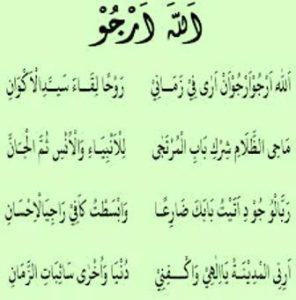 اَللّٰهَ اَرْجُوْ
اَللّٰه اَرْجُوْاَرْجُوْاَنْ اَرٰى فِيْ زَمَانِيْ رَوْحًا لِقَاءَ سَيِّدِ الْاَكْوَانِ
مَاحِى الظَّلَامِ شِرْكِ بَابِ الْمُرْتَجٰى لِلْاَنْبِيَاءِ وَالْاُنْسِ ثُمَّ الْجَانِّ
رَبَّالْوُجُوْدِ اَتَيْتُ بَابَكَ ضَارِعًا وَانْبَسَطْتُ كَفِّيْ رَاجِيَالْاِحْسَانِ
اَرِنِى الْمَدِيْنَةَ يَااِلٰهِيْ وَاكْفِنِيْ دُنْيَا وَاُخْرٰى سَائِبَاتِ الزَّمَانِ